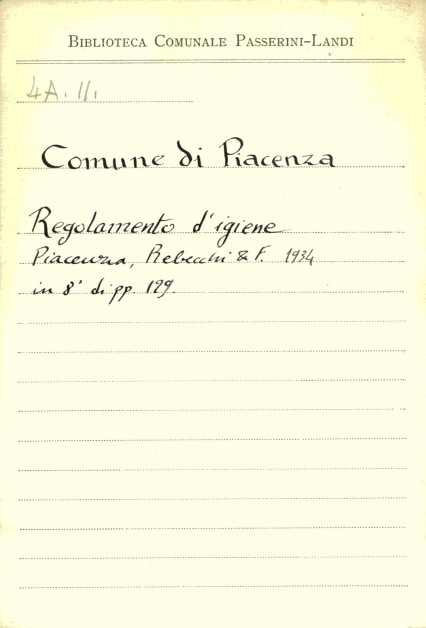 BIBLIOTECA COMUNALE PASSERINI-LANDI
4A. 11.
Comune di Piacenza
Regolamento d'igiene
Piacenza, Rebecchi & F. 1934
in 8° di pp. 129.